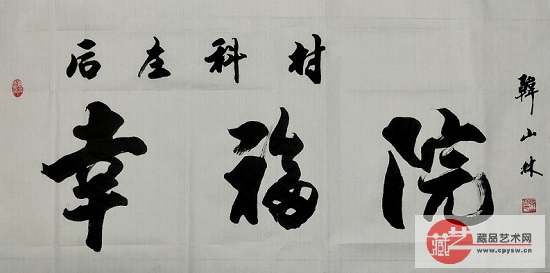 后左科村
幸福院
韩山林
藏艺
藏品艺术网
www.cpysw.cn